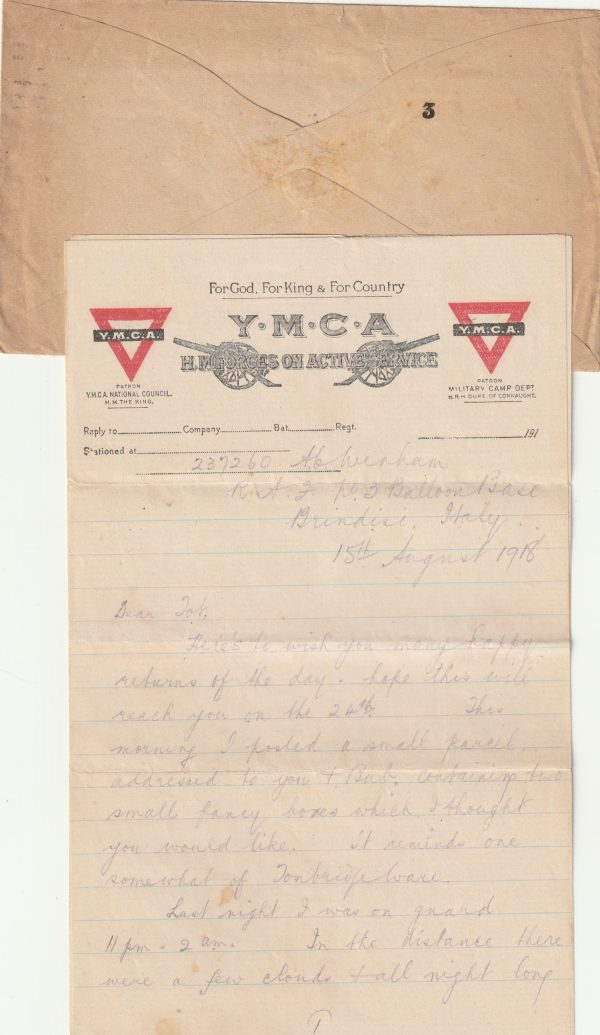 3
For God, For King & For Country
Y·M·C·A
H.M. FORCES ON ACTIVE SERVICE
Y.M.C.A.
PATRON
Y.M.C.A. NATIONAL COUNCIL.
H.M. THE KING.
Y.M.C.A.
PATRON
MILITARY CAMP DEPT
H.R.H. DUKE OF CONNAUGHT.
Reply to Company Bat. Regt. 191
Stationed at
237260 Ac Wenham
R A F No 3 Balloon Base
Brindisi. Italy.
15th August 1918
Dear Tot.
Here's to wish you many happy
returns of the day - hope this will
reach you on the 24th. This
morning I posted a small parcel,
addressed to you & Bub, containing two
small fancy boxes which I thought
you would like. It reminds one
somewhat of Tonbridge Ware.
Last night I was on guard
11 pm - 2 am. In the distance there
were a few clouds & all night long